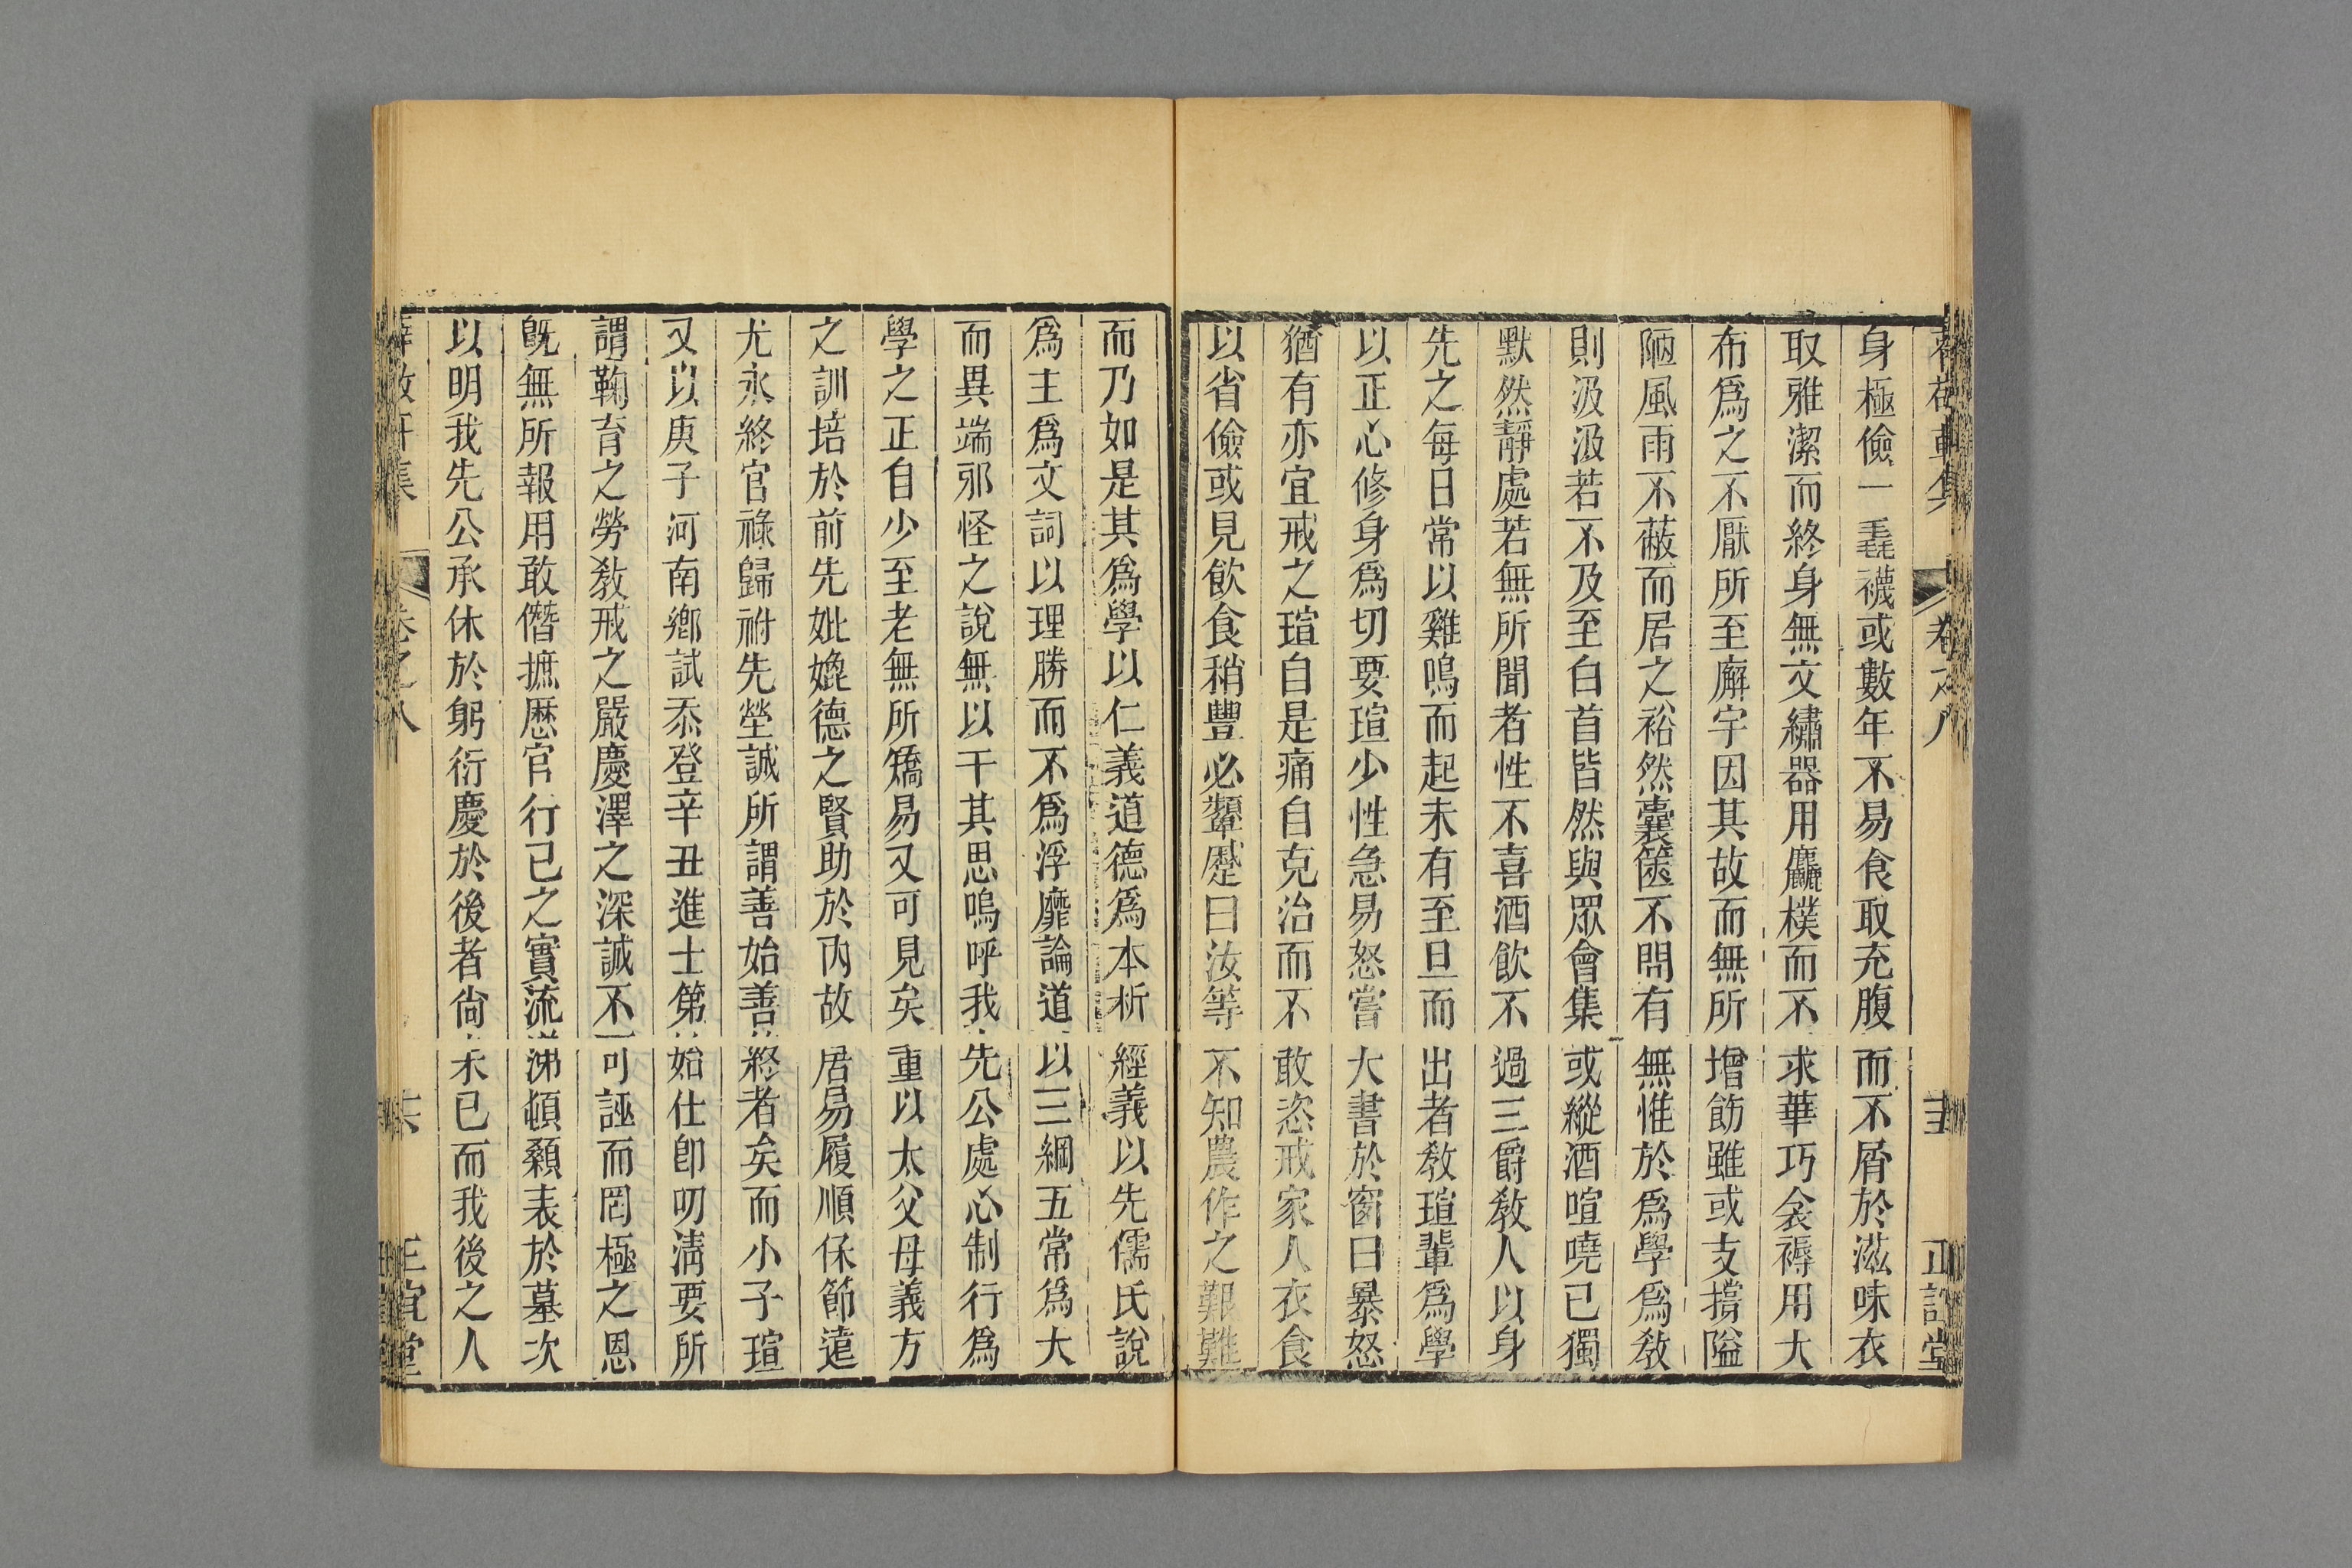 身極儉一毳襪或數年不易食取充腹而不屑於滋味衣
取雅潔而終身無文繡器用麤樸而不求華巧衾褥用大
布爲之不厭所至廨宇因其故而無所增飭雖或支撐隘
陋風雨不蔽而居之裕然囊篋不問有無惟於爲學爲敎
則汲汲若不及至白首皆然與眾會集或縱酒喧嘵已獨
默然靜處若無所聞者性不喜酒飲不過三爵敎人以身
先之每日常以雞鳴而起未有至旦而出者敎瑄輩爲學
以正心修身爲切要瑄少性急易怒嘗大書於窗曰暴怒
猶有亦宜戒之瑄自是痛自克治而不敢恣戒家人衣食
以省儉或見飲食稍豐必顰蹙曰汝等不知農作之艱難
而乃如是其爲學以仁義道德爲本析經義以先儒氏說
爲主爲文詞以理勝而不爲浮靡論道以三綱五常爲大
而異端邪怪之說無以干其思嗚呼我先公處心制行爲
學之正自少至老無所矯易又可見矣重以太父母義方
之訓培於前先妣媲德之賢助於內故居易履順保節遠
尤永終官祿歸祔先塋誠所謂善始善終者矣而小子瑄
又以庚子河南鄉試忝登辛丑進士第始仕卽叨清要所
謂鞠育之勞敎戒之嚴慶澤之深誠不可誣而罔極之恩
旣無所報用敢僭摭歷官行己之實流涕頓顙表於墓次
以明我先公承休於躬衍慶於後者尙未已而我後之人
卷之八